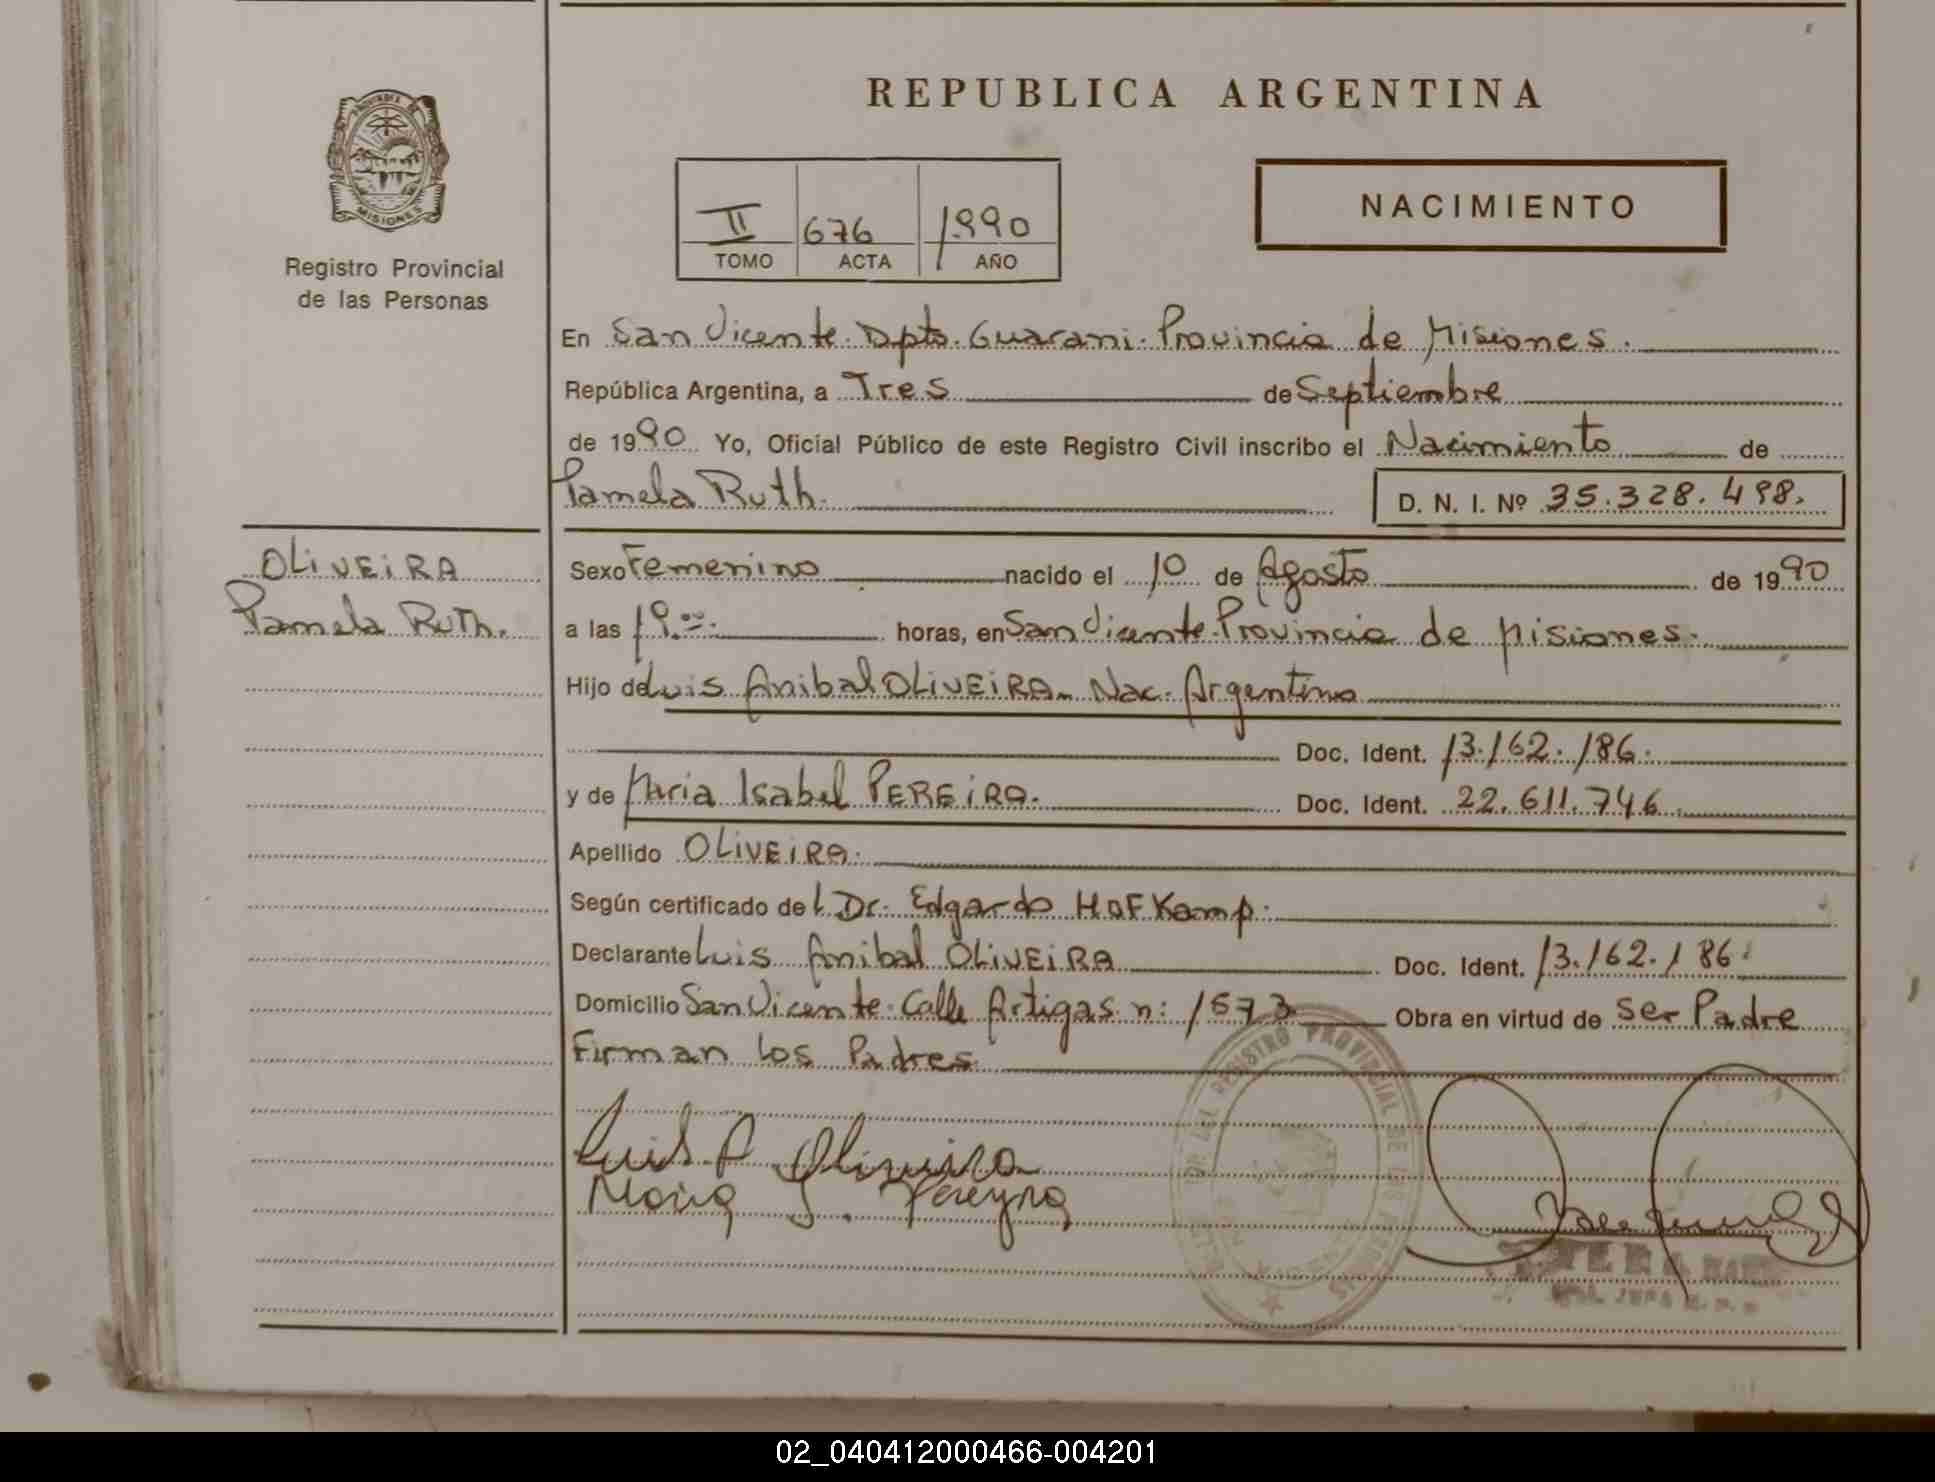 REPUBLICA ARGENTINA
PROVINCIA DE
MISIONES
Registro Provincial
de las Personas
II 676 1990
TOMO ACTA AÑO
NACIMIENTO
En San Vicente. Dpto. Guarani. Provincia de Misiones.
República Argentina, a Tres de Septiembre
de 1990 Yo, Oficial Público de este Registro Civil inscribo el Nacimiento de
Pamela Ruth. D. N. I. Nº 35.328.498.
OLIVEIRA
Pamela Ruth.
Sexo Femenino nacido el 10 de Agosto de 1990
a las 19.00. horas, en San Vicente. Provincia de Misiones.
Hijo de Luis Anibal OLIVEIRA. Nac. Argentino
Doc. Ident. 13.162.186.
y de Maria Isabel PEREIRA. Doc. Ident. 22.611.746.
Apellido OLIVEIRA.
Según certificado del Dr. Edgardo HOFKamp.
Declarante Luis Anibal OLIVEIRA Doc. Ident. 13.162.186.
Domicilio San Vicente. Calle Artigas n: 1573 Obra en virtud de Ser Padre
Firman los Padres.
Luis A Oliveira
Maria I. Pereyra
DEL REGISTRO PROVINCIAL DE LAS
02_040412000466-004201